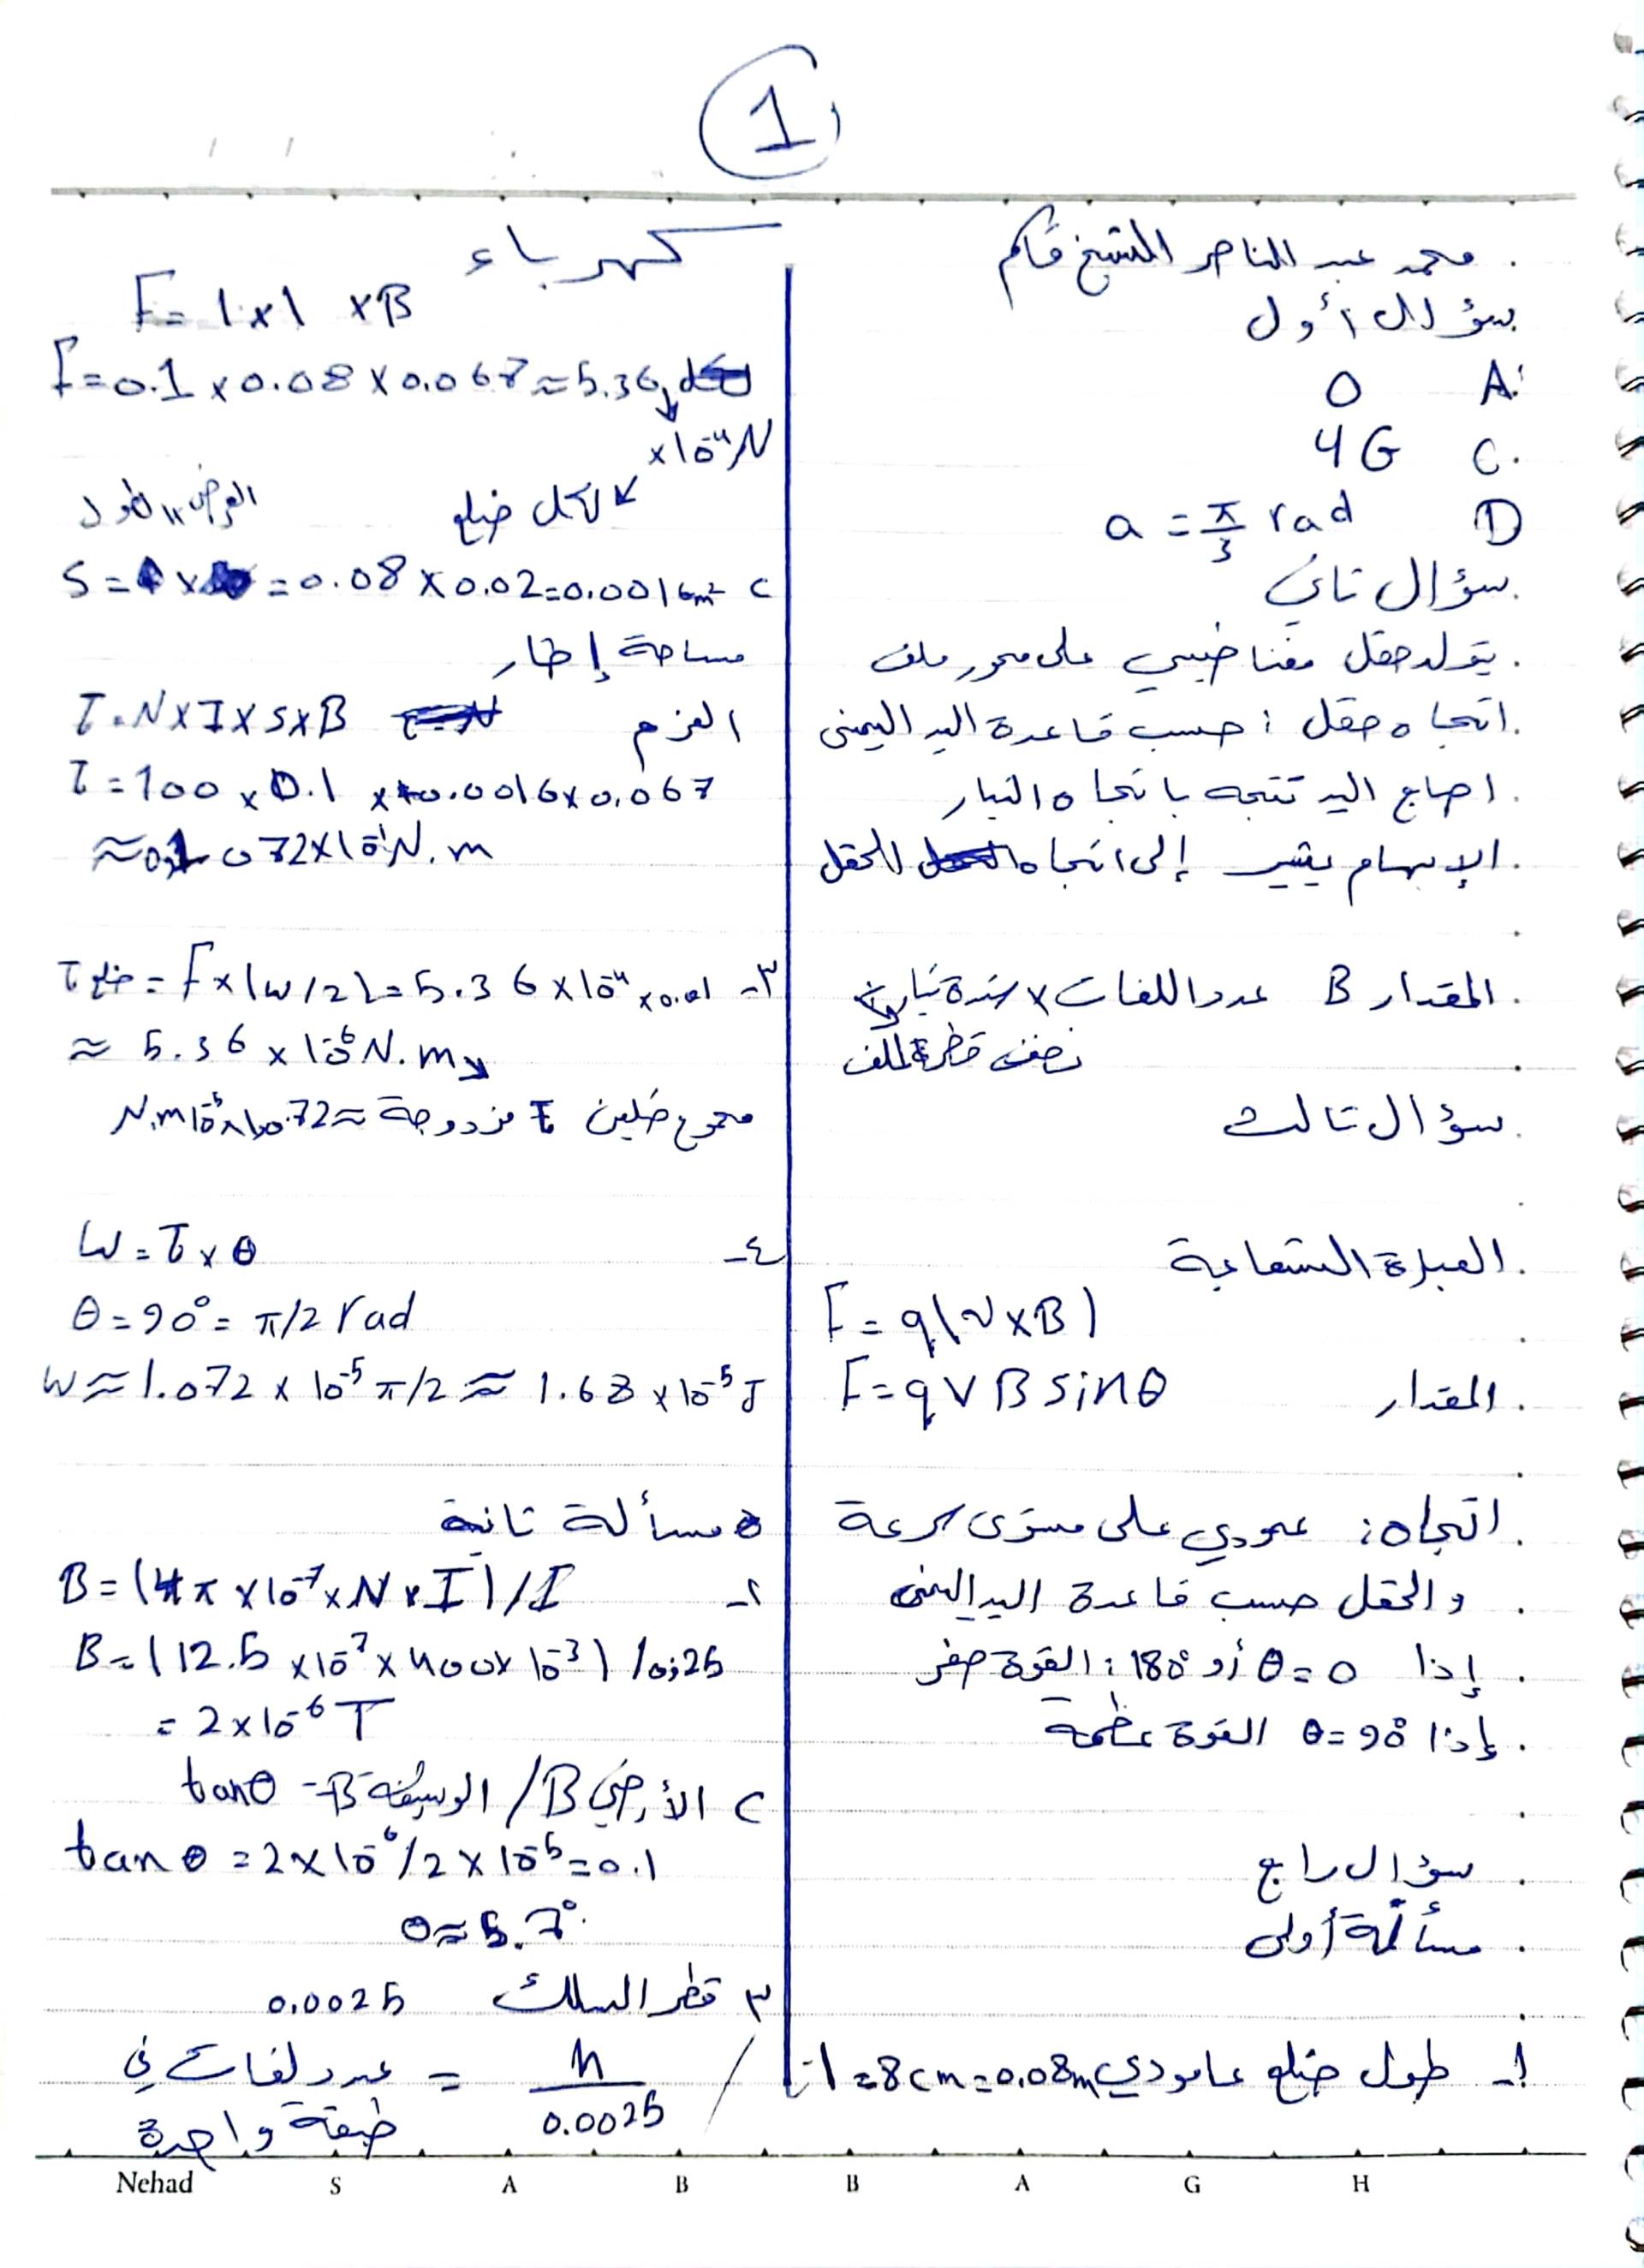 1
محمد عبد الناصر الشيخ قاسم
سؤال أول
A. 0
C. 4G
D a = π/3 rad
سؤال تاني
يتولد حقل مغناطيسي على محور ملف
اتجاه حقل : حسب قاعدة اليد اليمنى
اصابع اليد تتجه باتجاه التيار
الإبهام يشير إلى اتجاه الحقل
المقدار B عدد اللفات × شدة تيار
نصف قطر الملف
سؤال تالت
العبارة الشعاعية
F = q(v×B)
المقدار F = qVB sinθ
اتجاه: عمودي على مستوى سرعة
والحقل حسب قاعدة اليد اليمنى
إذا θ=0 أو 180° : القوة صفر
إذا θ=90° القوة عظمة
سؤال رابع
مسألة أولى
1- طول ضلع عامودي l=8cm=0.08m
كهرباء
F= I×l ×B
F=0.1×0.08×0.067≈5.36
×10⁻⁴N
لكل ضلع
العرض الطول
S= × =0.08×0.02=0.0016m² ٢
مساحة إطار
العزم T.N×I×S×B
T=100×0.1×0.0016×0.067
≈1.072×10⁻¹N.m
٣- ضلع T = F×(w/2)=5.36×10⁻⁴×0.01
≈ 5.36×10⁻⁶N.m
مجموع ضلعين T مزدوجة ≈
٤- W=T×θ
θ=90°=π/2 rad
W≈1.072×10⁻⁵π/2≈1.68×10⁻⁵J
مسألة تانية
١- B=(4π×10⁻⁷×N×I)/I
B=(12.5×10⁻⁷×400×10⁻³)/0.25
=2×10⁻⁶T
٢ tanθ =B الوشيعة/B الأرضي
tanθ=2×10⁻⁶/2×10⁻⁵=0.1
θ≈5.7°
٣ قطر السلك 0.0025
/ h/0.0025 = عدد لفات في
طبقة واحدة
Nehad S A B B A G H